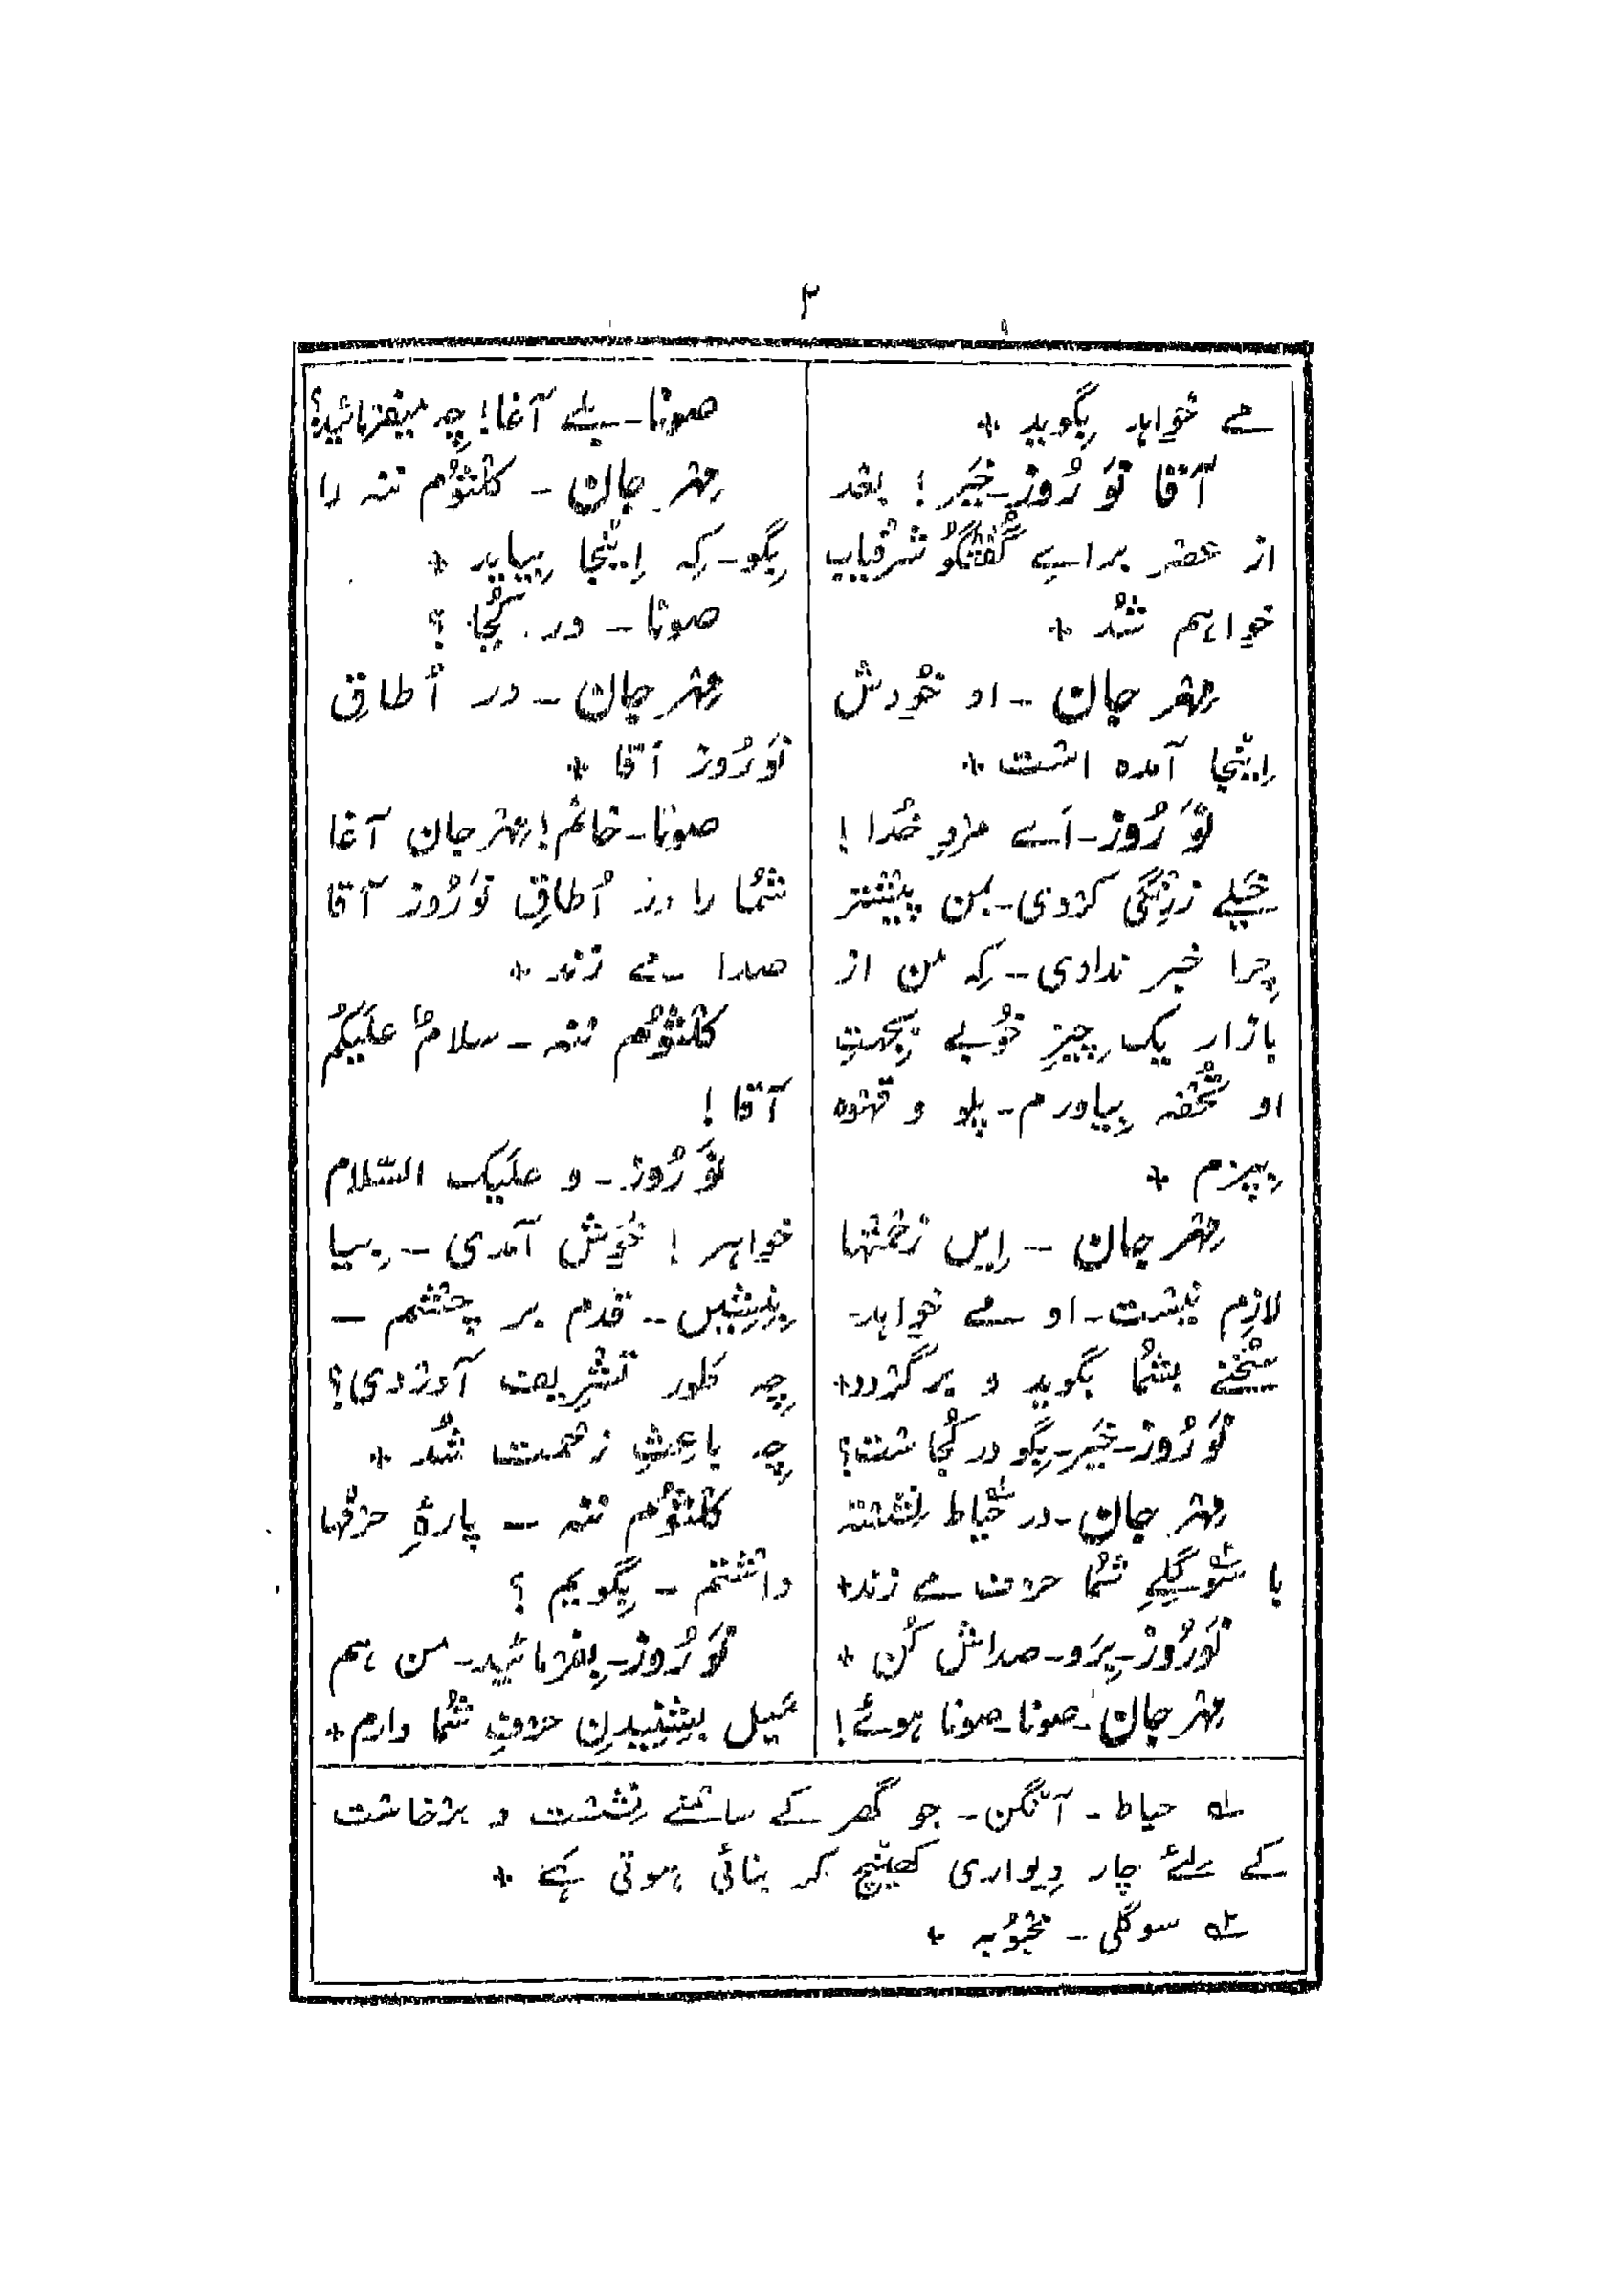 ۲
مے خواہد بگوید +
آقا نَوْرُوز۔خَیر! بعْد
از عصْر براے گُفتگُو شرْفیاب
خواہم شُد +
مِہْر جان ۔ او خُودش
اِینْجا آمدہ اشت +
نَوْرُوز۔اَے مرْدِ خُدا!
خَیلے زِرَنْگی کرْدی۔بمن پیشْتر
چرا خبر ندادی۔کِہ من از
بازار یک چِیزِ خُوبے بِجہتِ
او تُحْفہ بیاورم۔پلو و قہْوہ
بپزم +
مِہْر جان ۔ اِیں زحْمتْہا
لازِم نیشت۔او مے خواہد۔
سُخنے بشُما بگوید و برگرْدد+
نَوْرُوز۔خَیر۔بِگو در کُجاشت؟
مِہْر جان۔در حَیاط لہ نِشَشْتہ
با سَوگُلِے ۲ہ شُما حرْف مے زند+
نَوْرُوز۔بِرَو۔صداش کُن +
مِہْر جان۔صونا۔صونا ہوئے!
صونا۔بلے آغا! چہ میفرْمائید؟
مِہْر جان ۔ کُلثُوم ننہ را
بِگو۔کِہ اِینْجا بِیاید +
صونا ۔ در کُجا ؟
مِہْر جان ۔ در اُطاقِ
نَوْرُوز آقا +
صونا۔خانُم! مِہْر جان آغا
شُما را در اُطاقِ نَوْرُوز آقا
صدا مے زند +
کُلثُوم ننہ ۔ سلامٌ علَیکُمْ
آقا !
نَوْرُوز ۔ و علَیک السّلام
خواہر ! خُوش آمدی ۔ بیا
بِنِشِیں ۔ قدم بر چشْم ۔
چِہ طَور تشْرِیف آوردی؟
چِہ باعِثِ زحْمت شُد +
کُلثُوم ننہ ۔ پارۂ حرْفہا
داشْتم ۔ بِگویم ؟
نَوْرُوز۔بِفرْمائید۔من ہم
مَیل بِشنِیدنِ حرْفِ شُما دارم+
لہ حیاط ۔ آنگن ۔ جو گھر کے سامْنے نِشَشت و برْخاشت
کے لِئے چار دِیواری کھینْچ کر بنائی ہوتی ہَے +
۲ہ سوگلی ۔ محْبُوبہ +